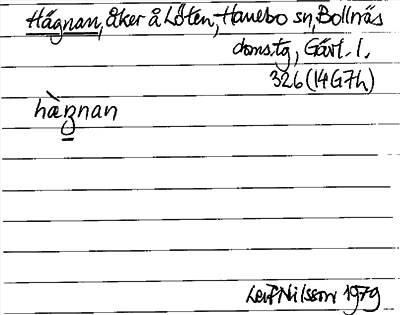 Hägnan, åker å Löten, Hanebo sn, Bollnäs
domstg, Gävl. l.
326 (14G7h)
hàgnan
Leif Nilsson 1979